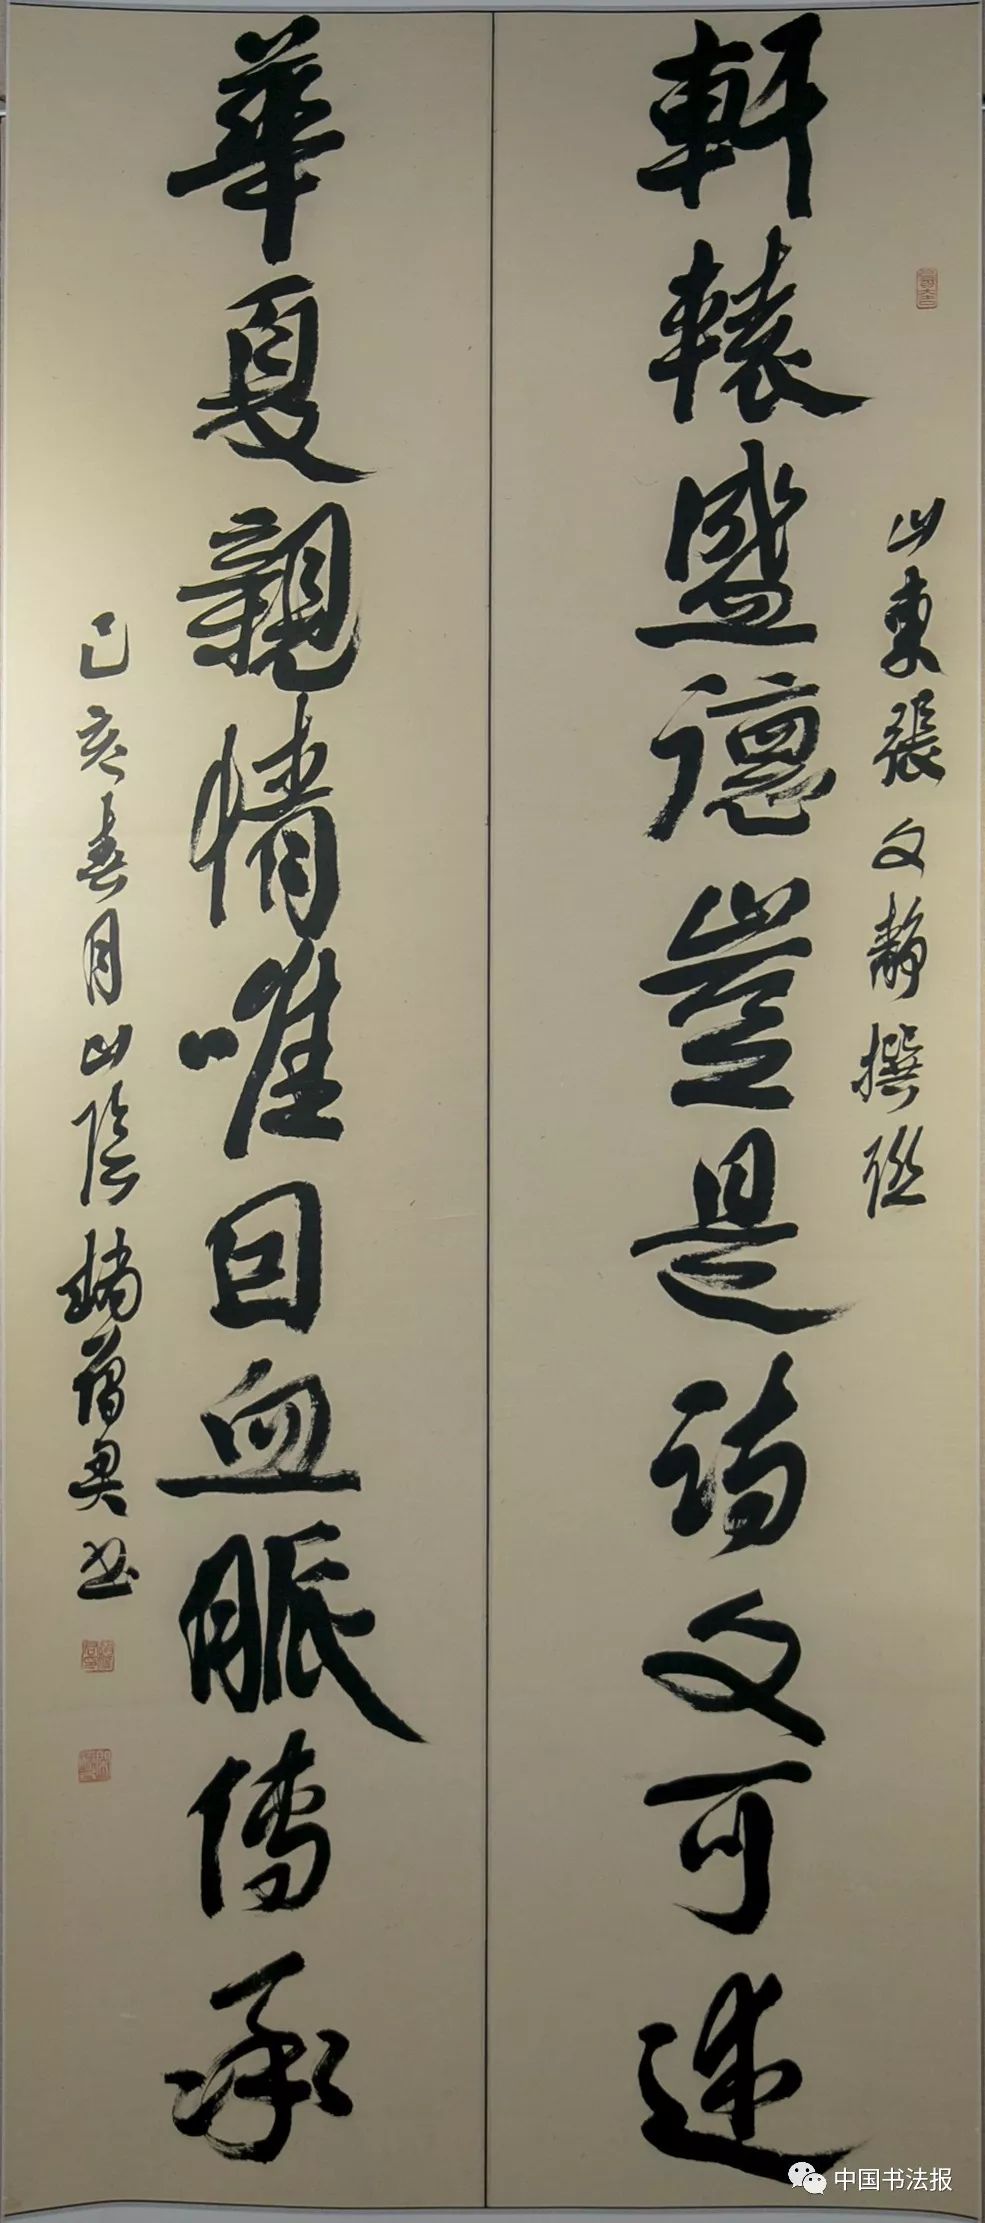 山東張文靜撰聯
軒轅盛德豈是詩文可述
華夏親情唯因血脈傳承
己亥春月山陰
書
中国书法报